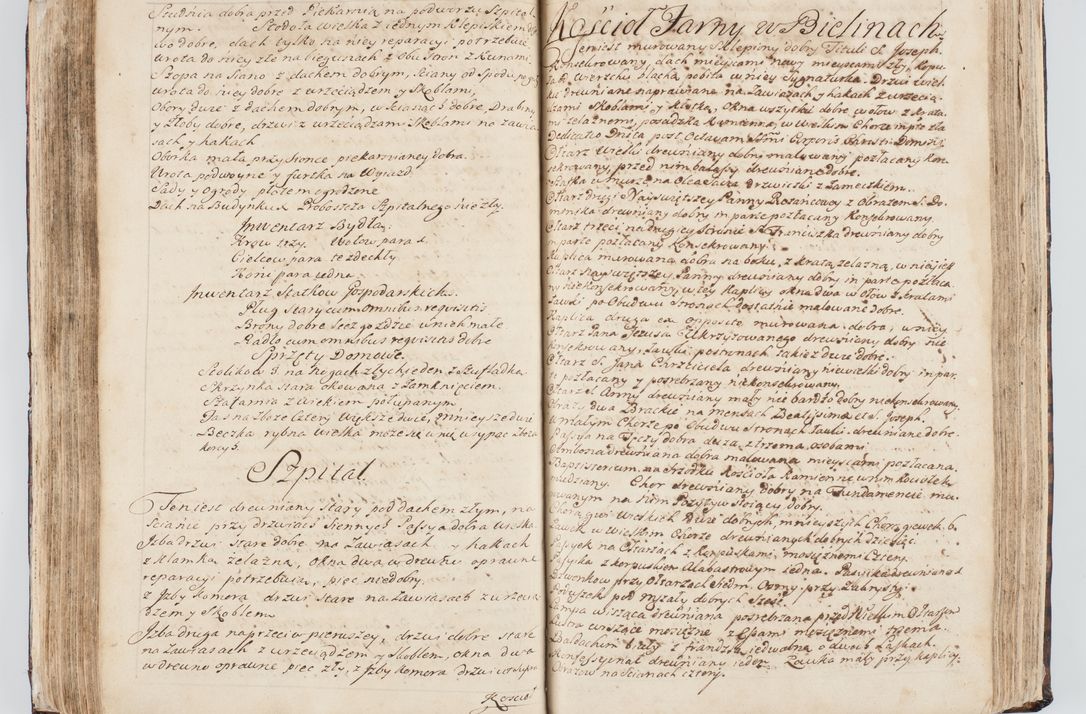 Studnia dobra przed Piekarnią na podworzu Szpital
nym. Stodoła wielka z iednym Klepiskiem
wo dobre, dach tylko na niey reparacyi potrzebuie
wrota do niey złe na biegunach z obu stron z Kunami
Szopa na Siano z dachem dobrym, sciany od spodu
wrota do niey dobre z wrzeciądzem y Skoblami,
Obory duże z dachem dobrym, w scianach dobre, Drabiny
y żłoby dobre, drzwi z wrzeciądzami Skoblami na zawia
sach y hakach
Oborka mała przy stonce piekarnianey dobra.
Wrota podwoyne y furtka na Wyiazd
Sady y ogrody płotem ogrodzone
Dach na Budynku X Proboszcza Szpitalnego nie zły.
Inwentarz Bydła.
Krow trzy. Wołow para 1.
Cielcow para
Koni para iedna.
Inwentarz Statkow Gospodarskich.
Pług stary cum omnibus requisitis
Brony dobre w nich małe
Radło cum omnibus requisitis dobre
Sprzęty Domowe.
Stolikow 3 na nogach złych ieden z Szufladką.
Skrzynka stara okowana z Zamknięciem.
Szafarnia z wiekiem połupanym
Beczka rybna wielka może się w nię wsypac
Szpital.
Ten iest drewniany stary pod dachem złym, na
ścianie przy drzwiach Siennych Passya dobra wielka
Izba drzwi stare dobre na zawiasach y hakach
z klamką żelazną, okna dwa w drewno oprawne
reparacyi potrzebuią, piec niedobry.
z Izby komora drzwi stare na zawiasach z wrzecią
dzem y Skoblem
Izba druga naprzeciw pierwszey, drzwi dobre stare
na zawiasach z wrzeciądzem y Skoblem, okna dwa
w drewno oprawne piec zły, z Izby komora drzwi ut supra
Koscioł
Kościoł Farny w Bielinach.
Ten iest murowany Sklepiony dobry Tituli S. Joseph.
Konsekrowany, dach mieyscami nowy mieyscami zły, kopu
ła z wierzchu blachą pobita w niey Sygnaturka. Drzwi wiel
kie drewniane naprawiane na zawiasach y hakach z wrzecią
dzami Skoblami y klotką, okna wszystkie dobre w ołow z krata
mi żelaznemi, posadzka kamienna, w Wielkim Chorze
Dedicatio Dnica post Octavam Ssmi Corporis Christi Domini
Ołtarz wielki drewniany dobry malowany pozłacany Kon
sekrowany, przed nim balasy drewniane dobre.
Szafka w murze na Olea Sacra drzwiczki z zameczkiem.
Ołtarz drugi Nayświętszey Panny Rożańcowey z Obrazem S. Do
minika drewniany dobry in parte pozłacany Konsekrowany.
Ołtarz trzeci na drugiey stronie S. Franciszka drewniany dobry
in parte pozłacany Konsekrowany.
Kaplica murowana dobra na boku, z kratą żelazną, w nieyiest
Ołtarz Nayświętszey Panny drewniany dobry in parte pozłaca
ny niekonsekrowany, w tey kaplicy okna dwa w ołow z kratami
Ławki po Obudwu stronach dostatnie malowane dobre.
Kaplica druga ex opposito murowana dobra, w niey
Ołtarz Pana Jezusa Ukrzyżowanego drewniany dobry nie
konsekrowany, Ławki po stronach także dwie dobre.
Ołtarz S. Jana Chrzciciela drewniany niewielki dobry in par
te pozłacany y posrebrzany niekonsekrowany.
Ołtarz S. Anny drewniany mały nie bardzo dobry niekonsekrowany
Obrazy dwa Brackie na mensach Beatissimæ et S. Joseph.
w małym Chorze po Obudwu stronach ławki drewniane dobre.
Passya na Tęczy dobra duża z trzema osobami
Ambona drewniana dobra malowana mieyscami pozłacana.
Baptisterium na szrodku kościoła kamienne w nim kociołek
miedziany. Chor drewniany dobry na Fundamencie mu
rowanym na nim Pozytyw stoiący dobry.
Chorągwi wielkich duże dobrych, mnieyszych Chorągiewek 6.
Ławek w wielkim Chorze drewnianych dobrych dziesięć
Passyek na Ołtarzach z korpuskami mosiężnemi cztery.
Passyika z korpusem Alabastrowym iedna. Passyika drewniana 1
Dzwonkow przy Ołtarzach siedm. Osmy przy Zakrystyi
Poduszek pod mszały dobrych sześć.
Lampa wisząca drewniana posrebrzana przed Wielkim Ołtarzem
Lustra wiszące mosiężne z Essami mosiężnemi trzema.
Baldachim biały z frandzlą iedwabną o dwoch Laskach.
Konfessyonał drewniany ieden Ławka mały przy kaplicy
Obrazow na scianach cztery.